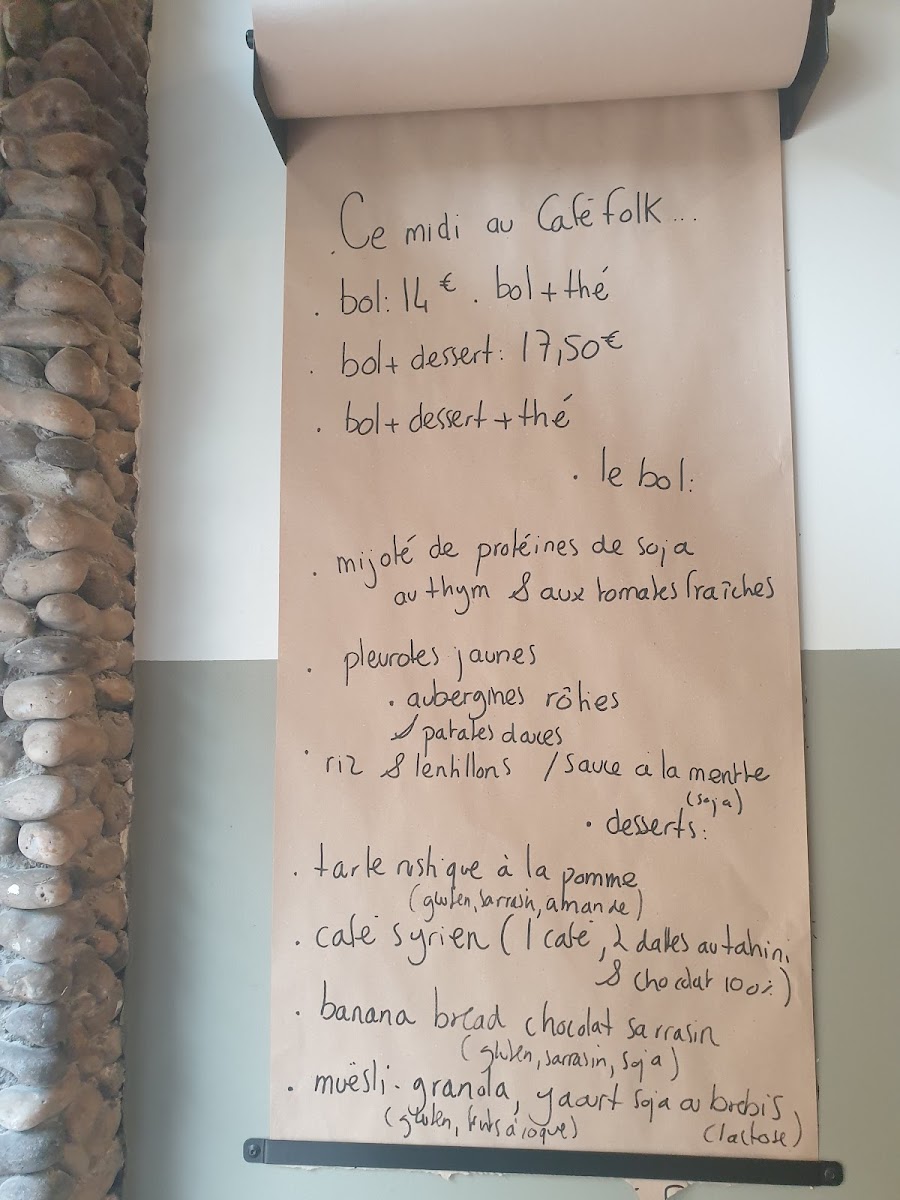 Ce midi au Caféfolk...
. bol: 14€ . bol + thé
. bol+ dessert: 17,50€
. bol + dessert + thé
. le bol:
. mijoté de protéines de soja
au thym & aux tomates fraîches
. pleurotes jaunes
. aubergines rôties
& patates douces
. riz & lentillons / sauce à la menthe
(soja)
. desserts:
. tarte rustique à la pomme
(gluten, sarrasin, amande)
. café syrien (1 café, 2 dattes au tahini
& chocolat 100%)
. banana bread chocolat sarrasin
(gluten, sarrasin, soja)
. muësli-granola, yaourt soja ou brebis
(gluten, fruits à coque) (lactose)